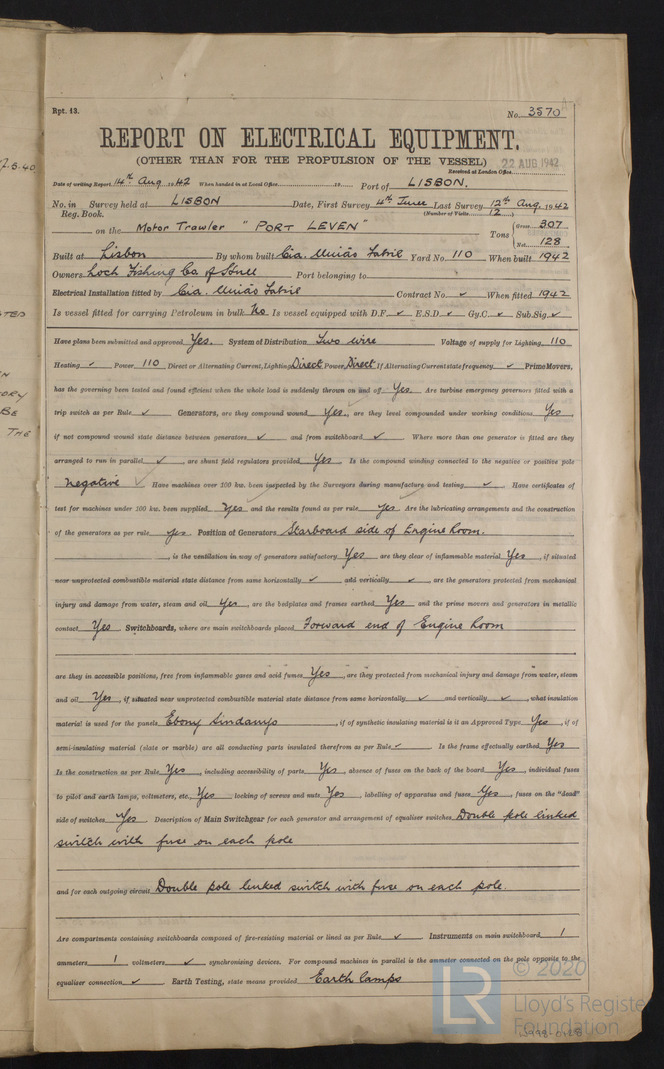 Rpt. 13.
No. 3570
REPORT ON ELECTRICAL EQUIPMENT.
(OTHER THAN FOR THE PROPULSION OF THE VESSEL)
22 AUG 1942
Received at London Office
Date of writing Report 14th Aug 1942 When handed in at Local Office 19 Port of LISBON.
No. in Survey held at LISBON Date, First Survey 4th June Last Survey 12th Aug. 1942
Reg. Book. (Number of Visits 12)
on the Motor Trawler "PORT LEVEN" Tons Gross 307
Net 128
Built at Lisbon By whom built Cia. União Fabril Yard No. 110 When built 1942
Owners Loch Fishing Co of Hull Port belonging to
Electrical Installation fitted by Cia. União Fabril Contract No. ✓ When fitted 1942
Is vessel fitted for carrying Petroleum in bulk No Is vessel equipped with D.F. ✓ E.S.D. ✓ Gy.C. ✓ Sub.Sig. ✓
Have plans been submitted and approved Yes. System of Distribution Two wire Voltage of supply for Lighting 110
Heating ✓ Power 110 Direct or Alternating Current, Lighting Direct Power Direct If Alternating Current state frequency ✓ Prime Movers,
has the governing been tested and found efficient when the whole load is suddenly thrown on and off Yes. Are turbine emergency governors fitted with a
trip switch as per Rule ✓ Generators, are they compound wound Yes, are they level compounded under working conditions Yes,
if not compound wound state distance between generators ✓ and from switchboard ✓ Where more than one generator is fitted are they
arranged to run in parallel ✓, are shunt field regulators provided Yes Is the compound winding connected to the negative or positive pole
negative Have machines over 100 kw. been inspected by the Surveyors during manufacture and testing ✓ Have certificates of
test for machines under 100 kw. been supplied Yes and the results found as per rule Yes Are the lubricating arrangements and the construction
of the generators as per rule Yes Position of Generators Starboard side of Engine Room.
, is the ventilation in way of generators satisfactory Yes are they clear of inflammable material Yes, if situated
near unprotected combustible material state distance from same horizontally ✓ and vertically ✓, are the generators protected from mechanical
injury and damage from water, steam and oil Yes, are the bedplates and frames earthed Yes and the prime movers and generators in metallic
contact Yes Switchboards, where are main switchboards placed Forward end of Engine Room
are they in accessible positions, free from inflammable gases and acid fumes Yes, are they protected from mechanical injury and damage from water, steam
and oil Yes, if situated near unprotected combustible material state distance from same horizontally ✓ and vertically ✓, what insulation
material is used for the panels Ebony Sindanyo, if of synthetic insulating material is it an Approved Type Yes, if of
semi-insulating material (slate or marble) are all conducting parts insulated therefrom as per Rule ✓ Is the frame effectually earthed Yes
Is the construction as per Rule Yes, including accessibility of parts Yes, absence of fuses on the back of the board Yes, individual fuses
to pilot and earth lamps, voltmeters, etc. Yes locking of screws and nuts Yes, labelling of apparatus and fuses Yes, fuses on the "dead"
side of switches Yes. Description of Main Switchgear for each generator and arrangement of equaliser switches Double pole linked
switch with fuse on each pole
and for each outgoing circuit Double pole linked switch with fuse on each pole.
Are compartments containing switchboards composed of fire-resisting material or lined as per Rule ✓ Instruments on main switchboard 1
ammeters 1 voltmeters ✓ synchronising devices. For compound machines in parallel is the ammeter connected on the pole opposite to the
equaliser connection ✓ Earth Testing, state means provided Earth lamps
LR © 2020
Lloyd's Registe
Foundation